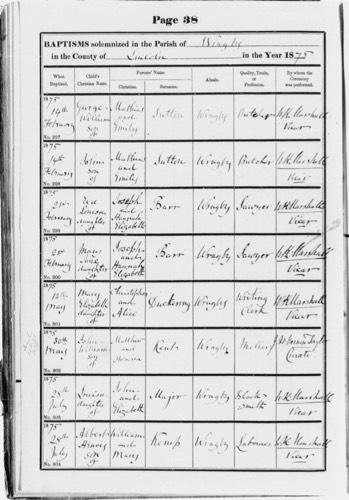 Page 38
BAPTISMS solemnized in the Parish of Wragby
in the County of Lincoln in the Year 1875
When Baptized. Child's Christian Name. Parents' Name. Christian. Surname. Abode. Quality, Trade, or Profession. By whom the Ceremony was performed.
1875
14th February
No. 297
George William son of
Matthias and Emily
Sutton
Wragby
Butcher
W K Marshall Vicar
14th February
No. 298
John son of
Matthias and Emily
Sutton
Wragby
Butcher
W K Marshall Vicar
1875
21st February
No. 299
Louisa daughter of
Joseph and Hannah Elizabeth
Barr
Wragby
Sawyer
W K Marshall Vicar
1875
21st February
No. 300
Mary Jane daughter of
Joseph and Hannah Elizabeth
Barr
Wragby
Sawyer
W K Marshall Vicar
1875
12th May
No. 301
Mary Elizabeth daughter of
Christopher and Alice
Duckering
Wragby
Writing Clerk
W K Marshall Vicar
1875
30th May
No. 302
John William son of
and
Kent
Wragby
Taylor Curate
1875
28th July
No. 303
Louisa daughter of
John and Elizabeth
Major
Wragby
Blacksmith
W K Marshall Vicar
1875
28th July
No. 304
Albert son of
William and Mary
Kemp
Wragby
Labourer
W K Marshall Vicar